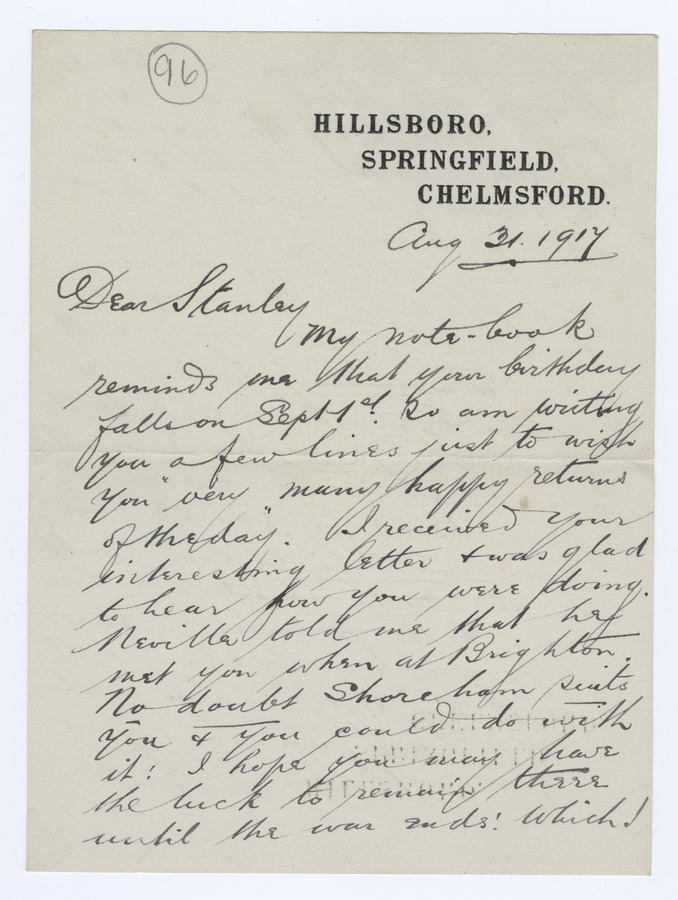 96
HILLSBORO,
SPRINGFIELD,
CHELMSFORD.
Aug 31. 1917
Dear Stanley
My note-book
reminds me that your birthday
falls on Sept 1st! So am writing
you a few lines just to wish
you "very many happy returns
of the day". I received your
interesting letter & was glad
to hear how you were doing.
Neville told me that he
met you when at Brighton.
No doubt Shoreham suits
you & you could do with
it! I hope you may have
the luck to remain there
until the war ends! Which!